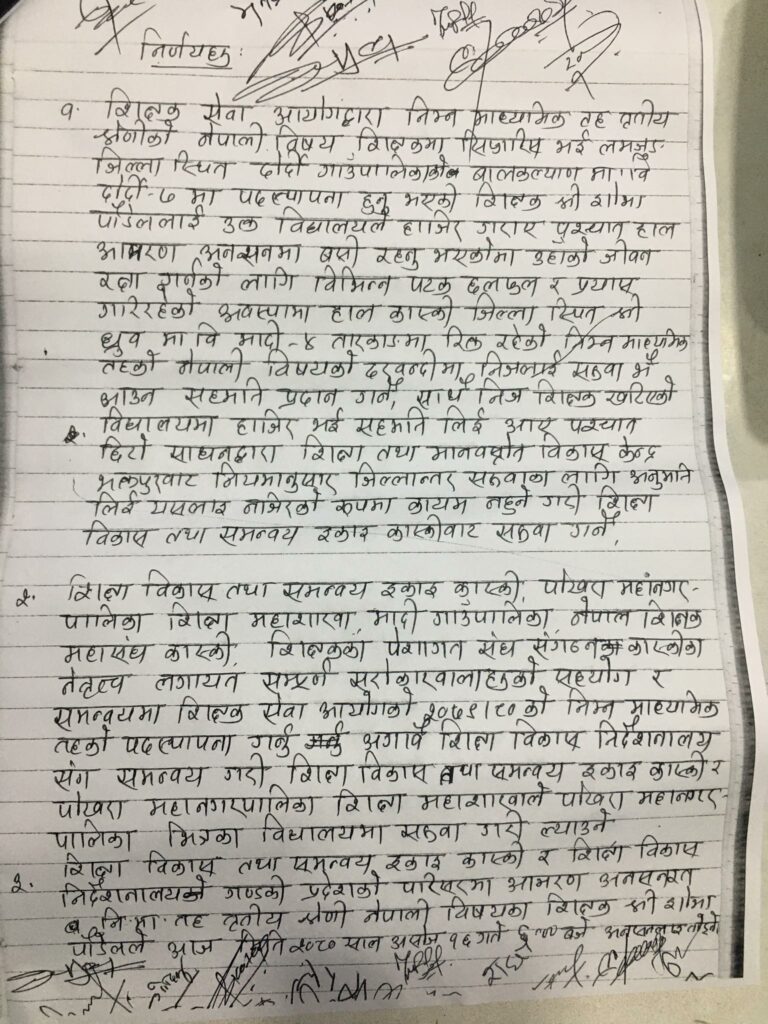 निर्णयहरु :
१. शिक्षक सेवा आयोगद्वारा निम्न माध्यामिक तह तृतीय
श्रेणीको नेपाली विषय शिक्षकमा सिफारिस भई लमजुङ
जिल्ला स्थित दोर्दी गाउँपालिकाको बालकल्याण मा.वि
दोर्दी-७ मा पदस्थापना हुनु भएकी शिक्षक श्री शोभा
पौडेललाई उक्त विद्यालयले हाजिर गराए पश्चात हाल
आमरण अनसनमा बसी रहनु भएकोमा उहाको जीवन
रक्षा गर्नको लागि विभिन्न पटक छलफल र प्रयास
गरिरहेको अवस्थामा हाल कास्की जिल्ला स्थित श्री
ध्रुव मा वि मादी-४ तारकाङमा रिक्त रहेको निम्न माध्यमिक
तहको नेपाली विषयको दरवन्दीमा निजलाई सरुवा भै
आउन सहमति प्रदान गर्ने, साथै निज शिक्षक खटिएको
विद्यालयमा हाजिर भई सहमति लिई आए पश्चात
छिटो साधनद्वारा शिक्षा तथा मानवस्रोत विकास केन्द्र
भक्तपुरवाट नियमानुसार जिल्लान्तर सरुवाका लागि अनुमति
लिई यसलाइ नजिरको रुपमा कायम नहुने गरी शिक्षा
विकास तथा समन्वय इकाइ कास्कीवाट सरुवा गर्ने,
२. शिक्षा विकास तथा समन्वय इकाइ कास्की, पोखरा महानगर-
पालिका शिक्षा महाशाखा, मादी गाउँपालिका, नेपाल शिक्षक
महासंघ कास्की, शिक्षकका पेशागत संघ संगठन कास्कीका
नेतृत्व लगायत सम्पूर्ण सरोकारवालाहरुको सहयोग र
समन्वयमा शिक्षक सेवा आयोगको २०७९।८० को निम्न माध्यमिक
तहको पदस्थापना गर्नु अगावै शिक्षा विकास निर्देशनालय
संग समन्वय गरी शिक्षा विकास तथा समन्वय इकाइ कास्की र
पोखरा महानगरपालिका शिक्षा महाशाखाले पोखरा महानगर-
पालिका भित्रका विद्यालयमा सरुवा गरी ल्याउने
३. शिक्षा विकास तथा समन्वय इकाइ कास्की र शिक्षा विकास
निर्देशनालय गण्डकी प्रदेशको परिसरमा आमरण अनसनरत
नि.मा. तह तृतीय श्रेणी नेपाली विषयका शिक्षक श्री शोभा
पौडेलले आज मिति २०८० साल असोज १६ गते बजे